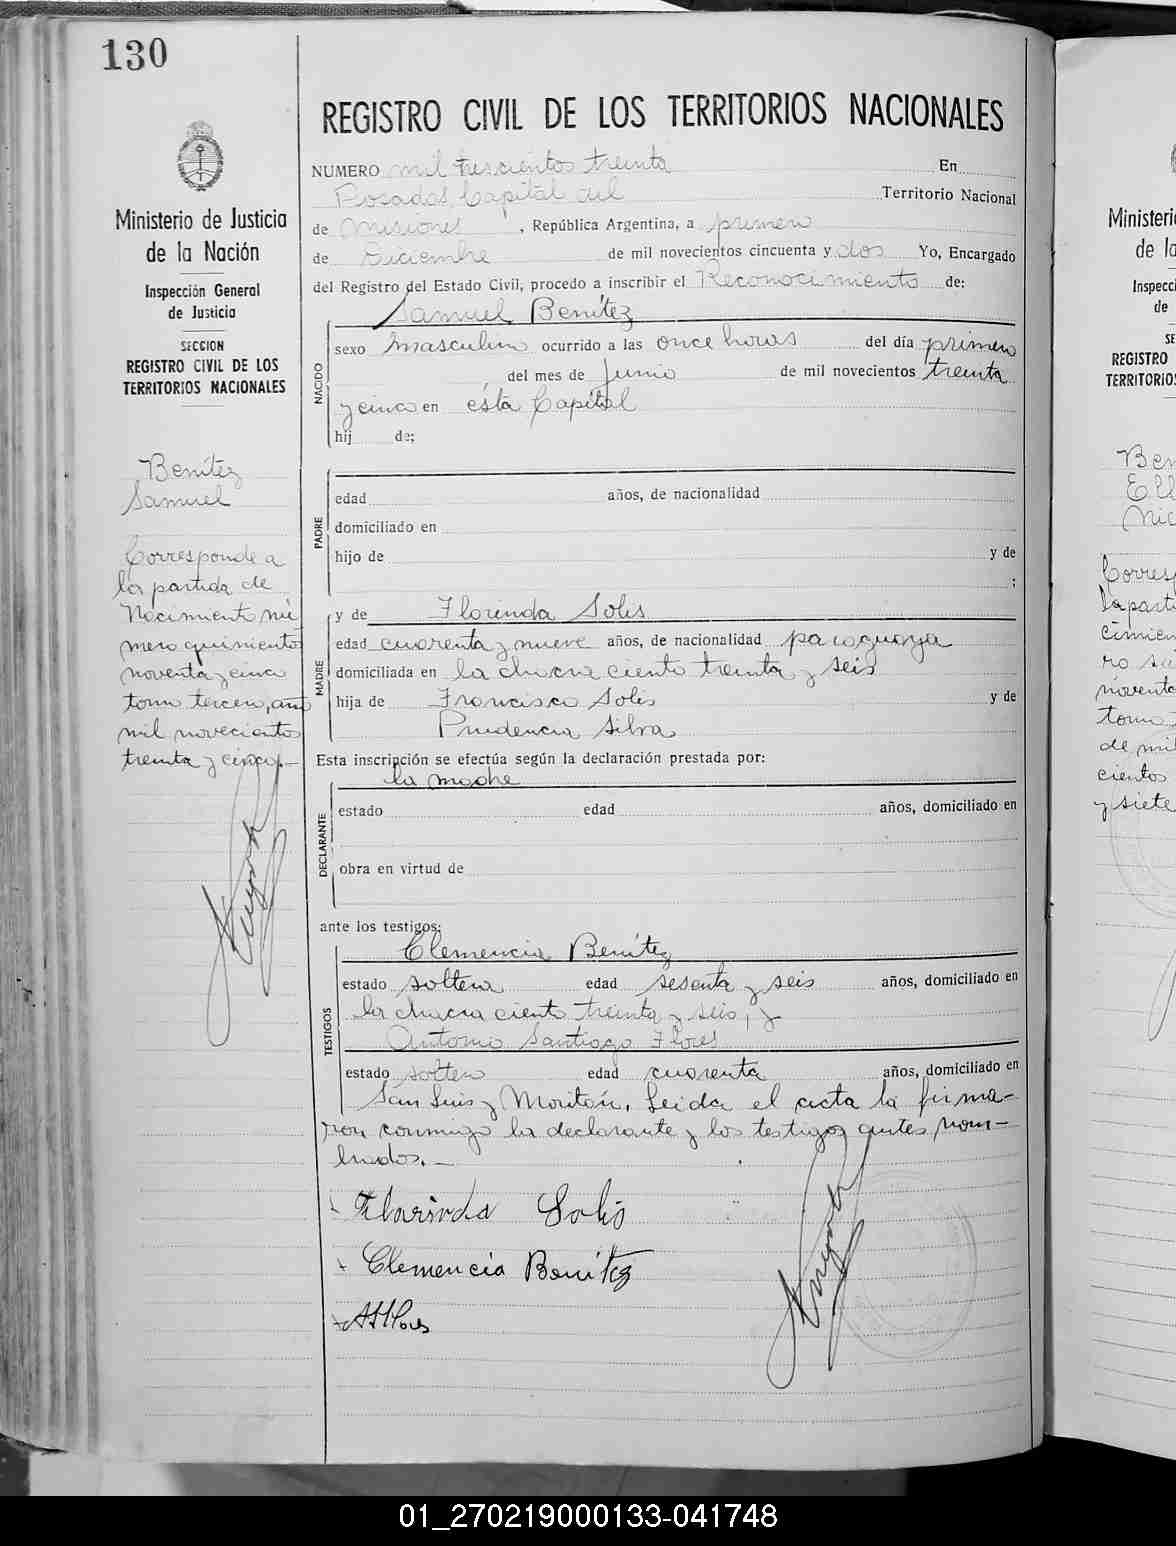 130
Ministerio de Justicia
de la Nación
Inspección General
de Justicia
SECCION
REGISTRO CIVIL DE LOS
TERRITORIOS NACIONALES
Benítez
Samuel
Corresponde a
la partida de
Nacimiento nú
mero quiniento
noventa y cinco
tomo tercero, año
mil novecientos
treinta y cinco.—
REGISTRO CIVIL DE LOS TERRITORIOS NACIONALES
NUMERO mil trescientos treinta En
Posadas, Capital del Territorio Nacional
de Misiones, República Argentina, a primero
de Diciembre de mil novecientos cincuenta y dos Yo, Encargado
del Registro del Estado Civil, procedo a inscribir el Reconocimiento de:
Samuel Benítez
NACIDO
sexo masculino ocurrido a las once horas del día primero
del mes de Junio de mil novecientos treinta
y cinco en ésta Capital
hij de;
PADRE
edad años, de nacionalidad
domiciliado en
hijo de y de
;
MADRE
y de Florinda Solis
edad cuarenta y nueve años, de nacionalidad paraguaya
domiciliada en la chacra ciento treinta y seis
hija de Francisco Solis y de
Prudencia Silva
Esta inscripción se efectúa según la declaración prestada por:
la madre
DECLARANTE
estado edad años, domiciliado en
obra en virtud de
ante los testigos:
Clemencia Benítez
TESTIGOS
estado soltera edad sesenta y seis años, domiciliado en
la chacra ciento treinta y seis, y
Antonio Santiago Flores
estado soltero edad cuarenta años, domiciliado en
San Luis y Moritán. Leida el acta la firma-
ron conmigo la declarante y los testigos antes nom-
brados.—
Florinda Solis
Clemencia Benítez
ASFlores
Ministeri
de la
Inspecci
de
SE
REGISTRO
TERRITORIOS
Ben
Corresp
la parti
cimien
ro
noventa
tomo
de mil
cientos
y siete
01_270219000133-041748